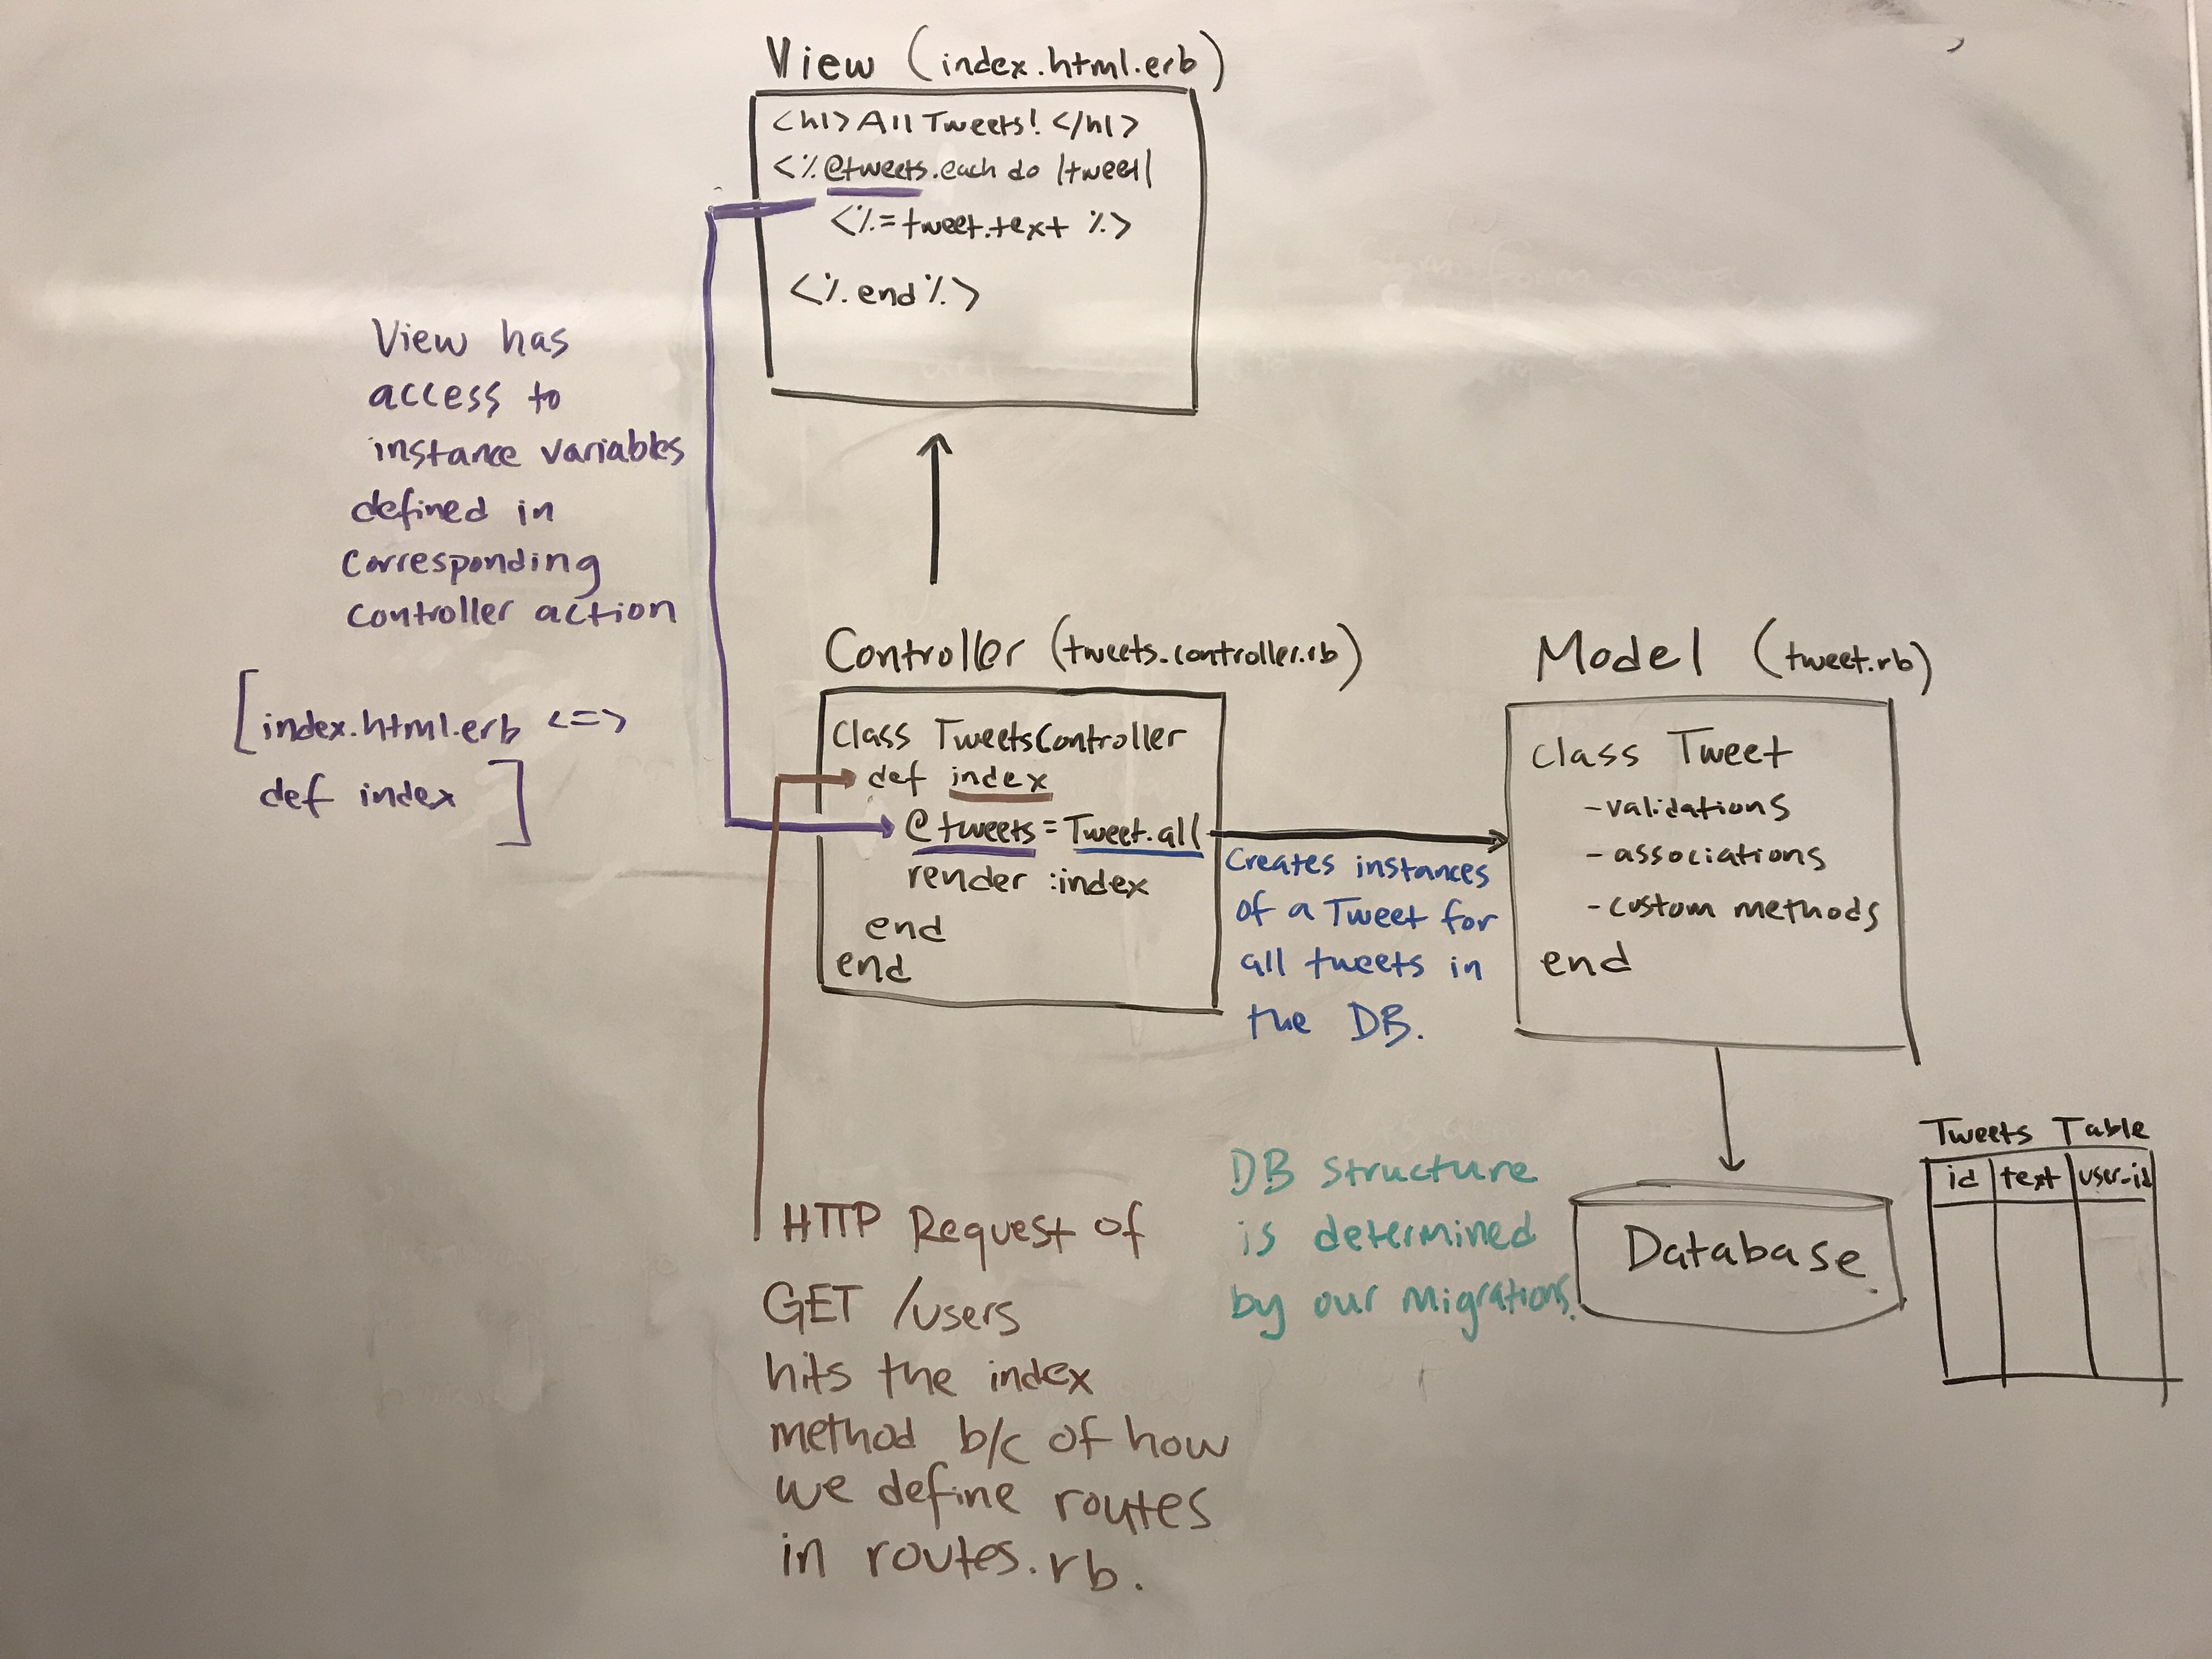 View (index.html.erb)
<h1>All Tweets!</h1>
<%@tweets.each do |tweet|
<%=tweet.text %>
<%.end%>
View has
access to
instance variables
defined in
corresponding
controller action
[index.html.erb <=>
def index]
Controller (tweets_controller.rb)
Class TweetsController
def index
@tweets=Tweet.all
render :index
end
end
Creates instances
of a Tweet for
all tweets in
the DB.
Model (tweet.rb)
class Tweet
-validations
-associations
-custom methods
end
HTTP Request of
GET /users
hits the index
method b/c of how
we define routes
in routes.rb.
DB structure
is determined
by our migrations.
Database
Tweets Table
id text user-id